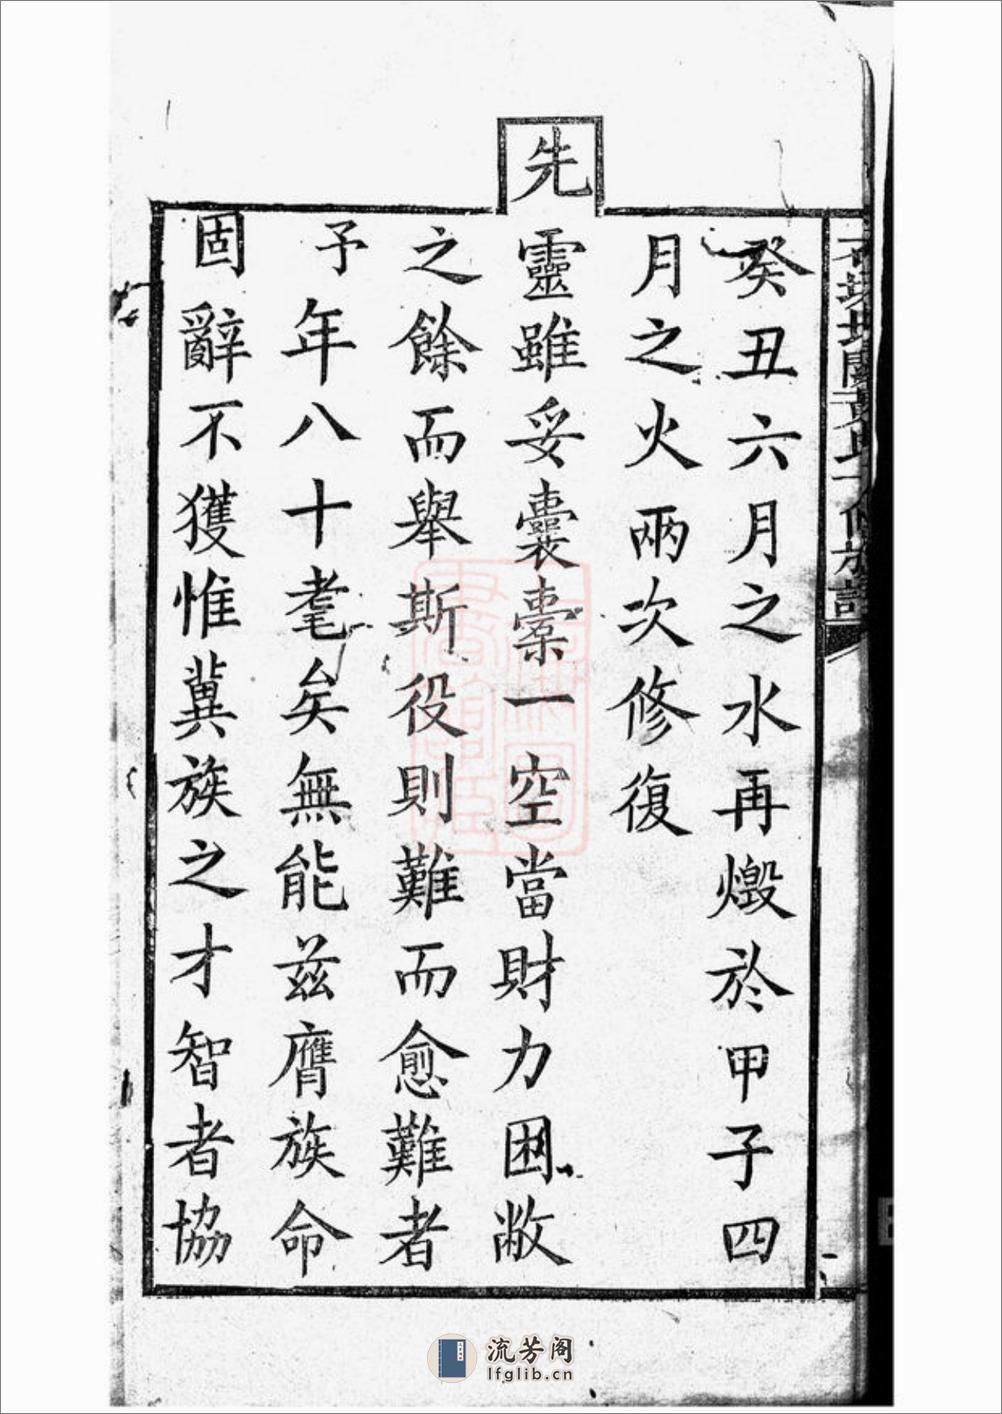 癸丑六月之水再燬於甲子四
月之火兩次修復
先
靈雖妥囊橐一空當財力困敝
之餘而舉斯役則難而愈難者
予年八十耄矣無能茲膺族命
固辭不獲惟冀族之才智者協
流芳阁
lfglib.cn